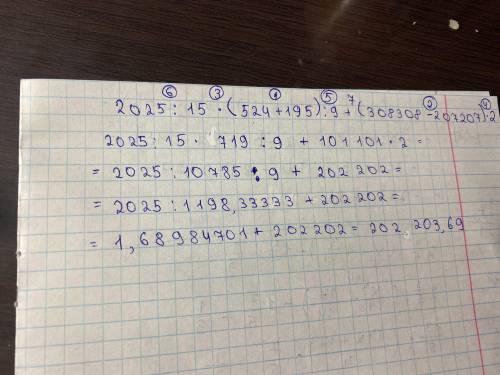 ⑥ ③ ① ⑤ 7 ② ④
2025 : 15 · (524+195) : 9 + (308308 - 207207) · 2
2025 : 15 · 719 : 9 + 101101 · 2 =
= 2025 : 10785 : 9 + 202202 =
= 2025 : 1198,33333 + 202202 =
= 1,68984701 + 202202 = 202 203,69